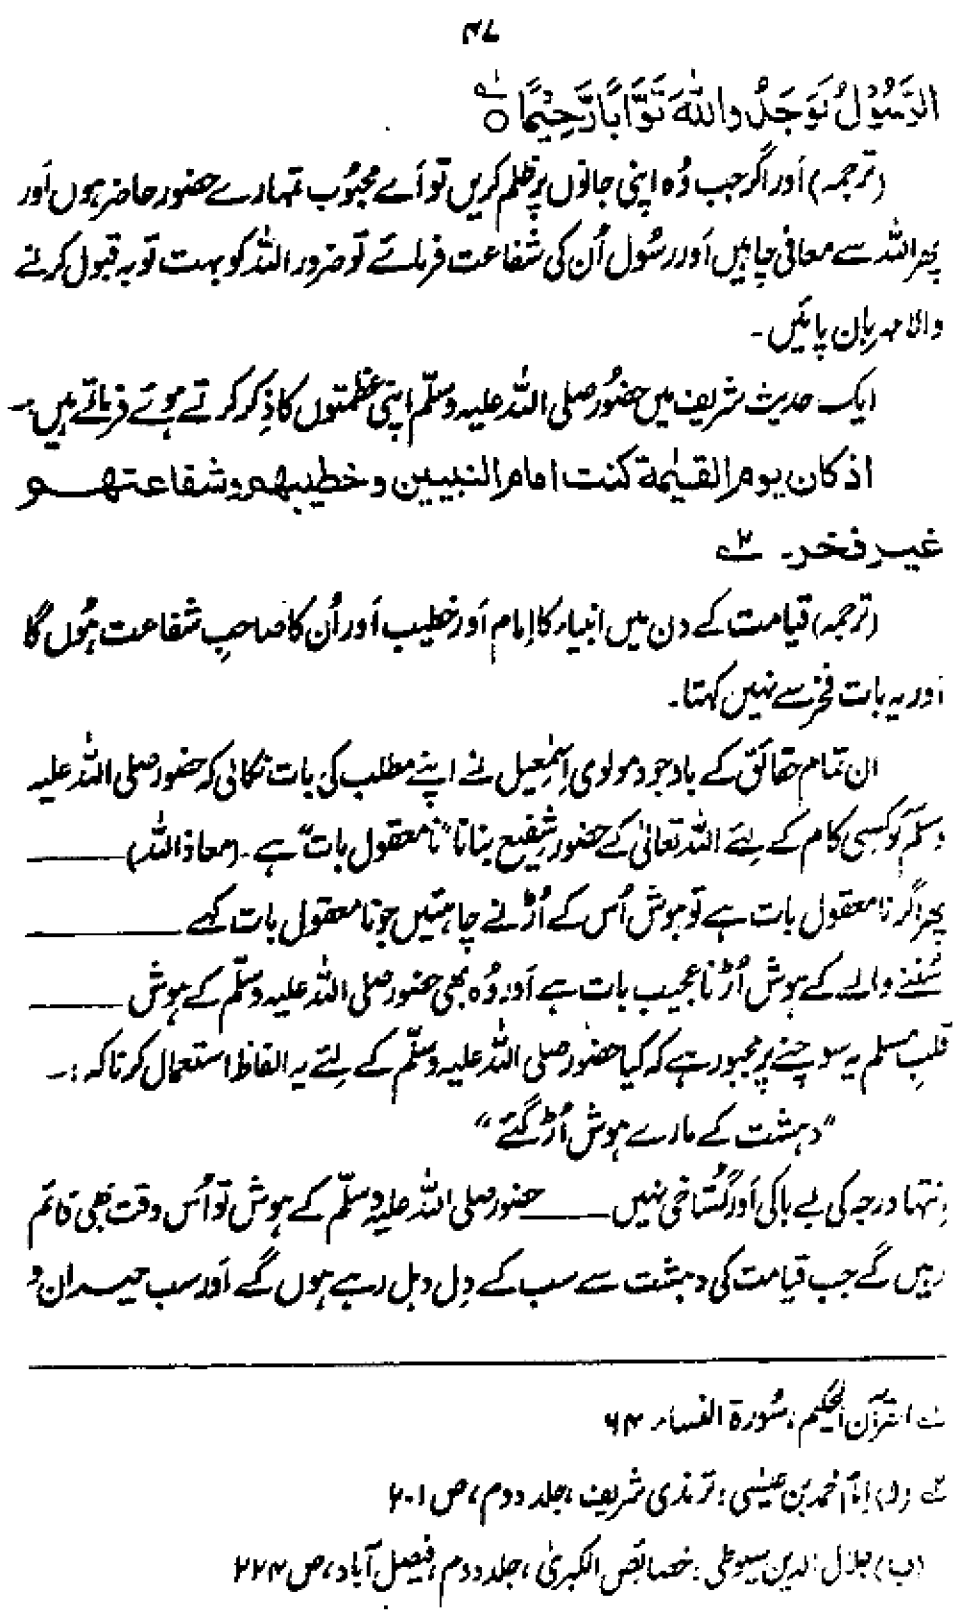 ۴۷
الرَّسُوْلُ لَوَجَدُ واللّٰهَ تَوَّابًا رَّحِيْمًا ○ ؎۱
(ترجمہ) اَور اگر جب وُہ اپنی جانوں پر ظلم کریں تو اَے محبُوب تمہارے حضور حاضر ہوں اَور
پھر اللہ سے معافی چاہیں اَور رسُول اُن کی شفاعت فرمائے تو ضرور اللہ کو بہت توبہ قبول کرنے
والا مہربان پائیں۔
ایک حدیث شریف میں حضُور صلی اللہ علیہ وسلّم اپنی عظمتوں کا ذِکر کرتے ہوئے فرماتے ہیں:۔
اذ كان يوم القيٰمة كنت امام النبيين وخطيبهم وشفاعتهم
غير فخر۔ ؎۲
(ترجمہ) قیامت کے دن میں انبیاء کا اِمام اَور خطیب اَور اُن کا صاحبِ شفاعت ہُوں گا
اَور یہ بات فخر سے نہیں کہتا۔
ان تمام حقائق کے باوجود مولوی اِسمٰعیل نے اپنے مطلب کی بات نکالی کہ حضور صلی اللہ علیہ
وسلّم کو کسی کام کے لِئے اللہ تعالیٰ کے حضور شفیع بنانا "نامعقول بات" ہے۔ (معاذ اللہ) ______
پھر اگر نامعقول بات ہے تو ہوش اُس کے اُڑنے چاہئیں جو نامعقول بات کہے ______
سُننے والے کے ہوش اُڑنا عجیب بات ہے اَور وُہ بھی حضور صلی اللہ علیہ وسلّم کے ہوش ______
قلبِ مسلم یہ سوچنے پر مجبور ہے کہ کیا حضور صلی اللہ علیہ وسلّم کے لِئے یہ الفاظ استعمال کرنا کہ:۔
"دہشت کے مارے ہوش اُڑ گئے"
اِنتہا درجہ کی بے باکی اَور گُستاخی نہیں ______ حضور صلی اللہ علیہ وسلّم کے ہوش تو اُس وقت بھی قائم
رہیں گے جب قیامت کی دہشت سے سب کے دِل دہل رہے ہوں گے اَور سب حیران و
؎۱ القرآن الحکیم، سُورۃ النساء ۶۴
؎۲ (ا) اِمام محمد بن عیسٰی: ترمذی شریف، جلد دوم، ص ۲۰۱
(ب) جلال الدین سیوطی: خصائص الکبریٰ، جلد دوم، فیصل آباد، ص ۲۲۴